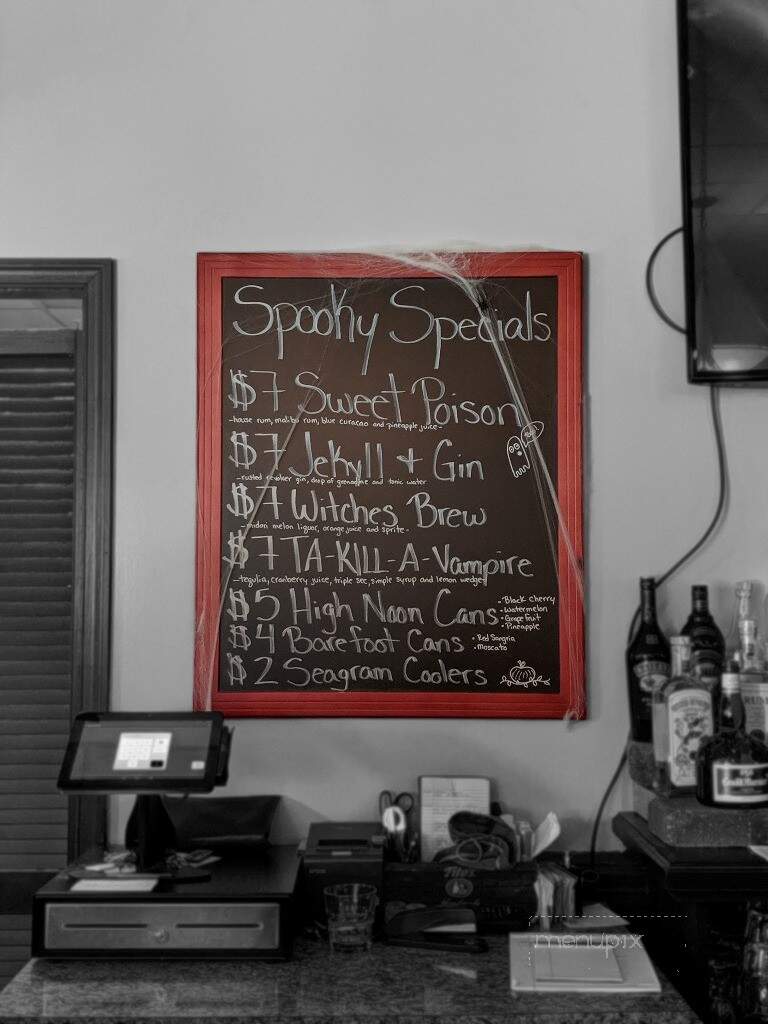 Spooky Specials
$7 Sweet Poison
-house rum, malibu rum, blue curacao and pineapple juice-
$7 Jekyll + Gin
-rusted revolver gin, drop of grenadine and tonic water
$7 Witches Brew
-midori melon liquor, orange juice and sprite-
$7 TA-KILL-A-Vampire
-tequila, cranberry juice, triple sec, simple syrup and lemon wedge
$5 High Noon Cans
- Black cherry
- Watermelon
- Grapefruit
- Pineapple
$4 Barefoot Cans
- Red Sangria
- Moscato
$2 Seagram Coolers
menupix